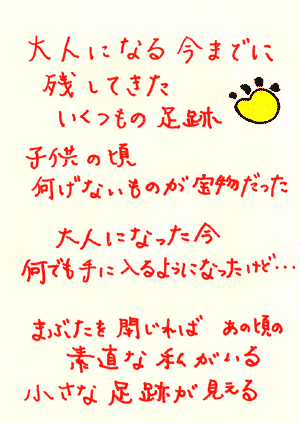 大人になる 今までに
残してきた
いくつもの 足跡
子供の頃
何げないものが宝物だった
大人になった今
何でも手に入るようになったけど・・・
まぶたを閉じれば あの頃の
素直な私がいる
小さな足跡が見える